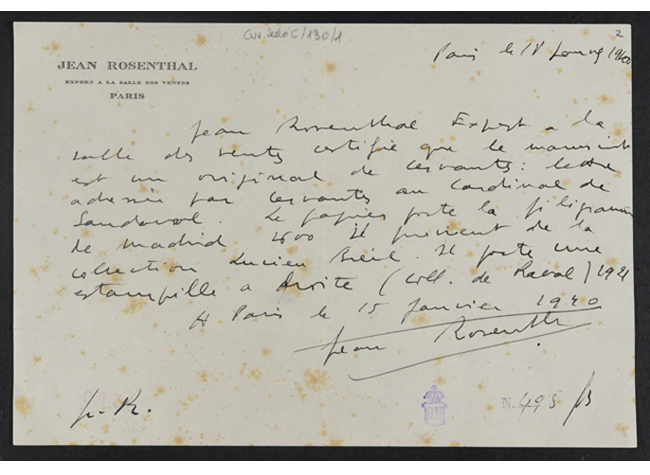 2
JEAN ROSENTHAL
EXPERT A LA SALLE DES VENTES
PARIS
Paris le
Jean Rosenthal Expert a la
salle des ventes certifie que le manuscrit
est un original de cervantes: lettre
adressée par cervantes au cardinal de
Sandoval. Le papier porte la filigramme
de madrid 1600 Il provient de la
collection Lucien Il porte une
estampille a droite (coll. de Raval) 1921
A Paris le 15 Janvier 1940
Jean Rosenthal
J. R.
N. 495